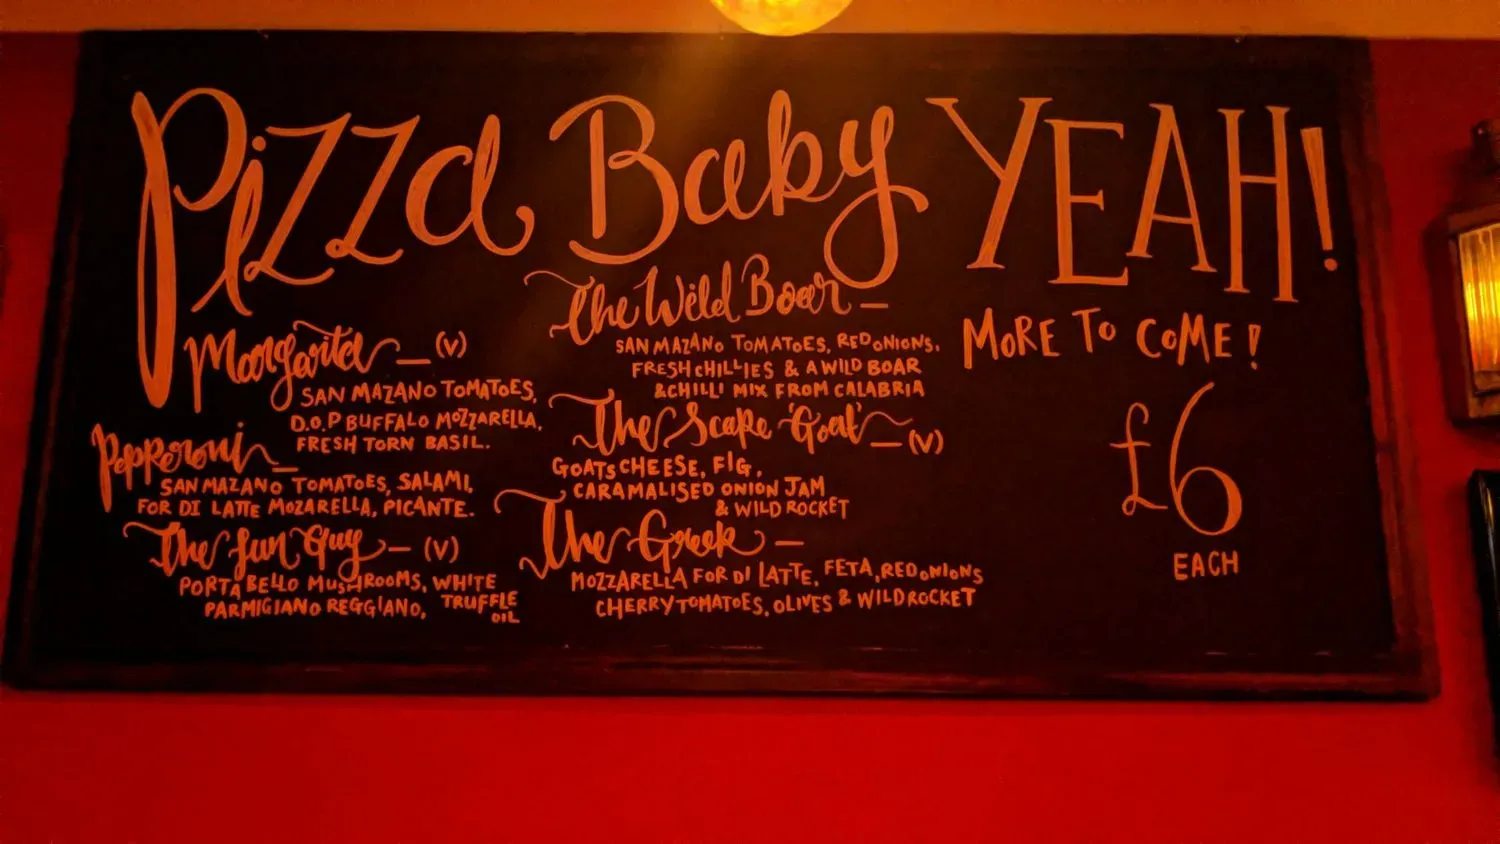 Pizza Baby YEAH!
Margarita — (v)
SAN MAZANO TOMATOES,
D.O.P BUFFALO MOZZARELLA,
FRESH TORN BASIL.
Pepperoni —
SAN MAZANO TOMATOES, SALAMI,
FOR DI LATTE MOZARELLA, PICANTE.
The fun Guy — (v)
PORTA BELLO MUSHROOMS, WHITE
PARMIGIANO REGGIANO, TRUFFLE
OIL
The Wild Boar —
SAN MAZANO TOMATOES, RED ONIONS,
FRESH CHILLIES & A WILD BOAR
& CHILLI MIX FROM CALABRIA
The Scape 'Goat' — (v)
GOATS CHEESE, FIG,
CARAMALISED ONION JAM
& WILD ROCKET
The Greek —
MOZZARELLA FOR DI LATTE, FETA, RED ONIONS
CHERRY TOMATOES, OLIVES & WILD ROCKET
MORE TO COME!
£6
EACH